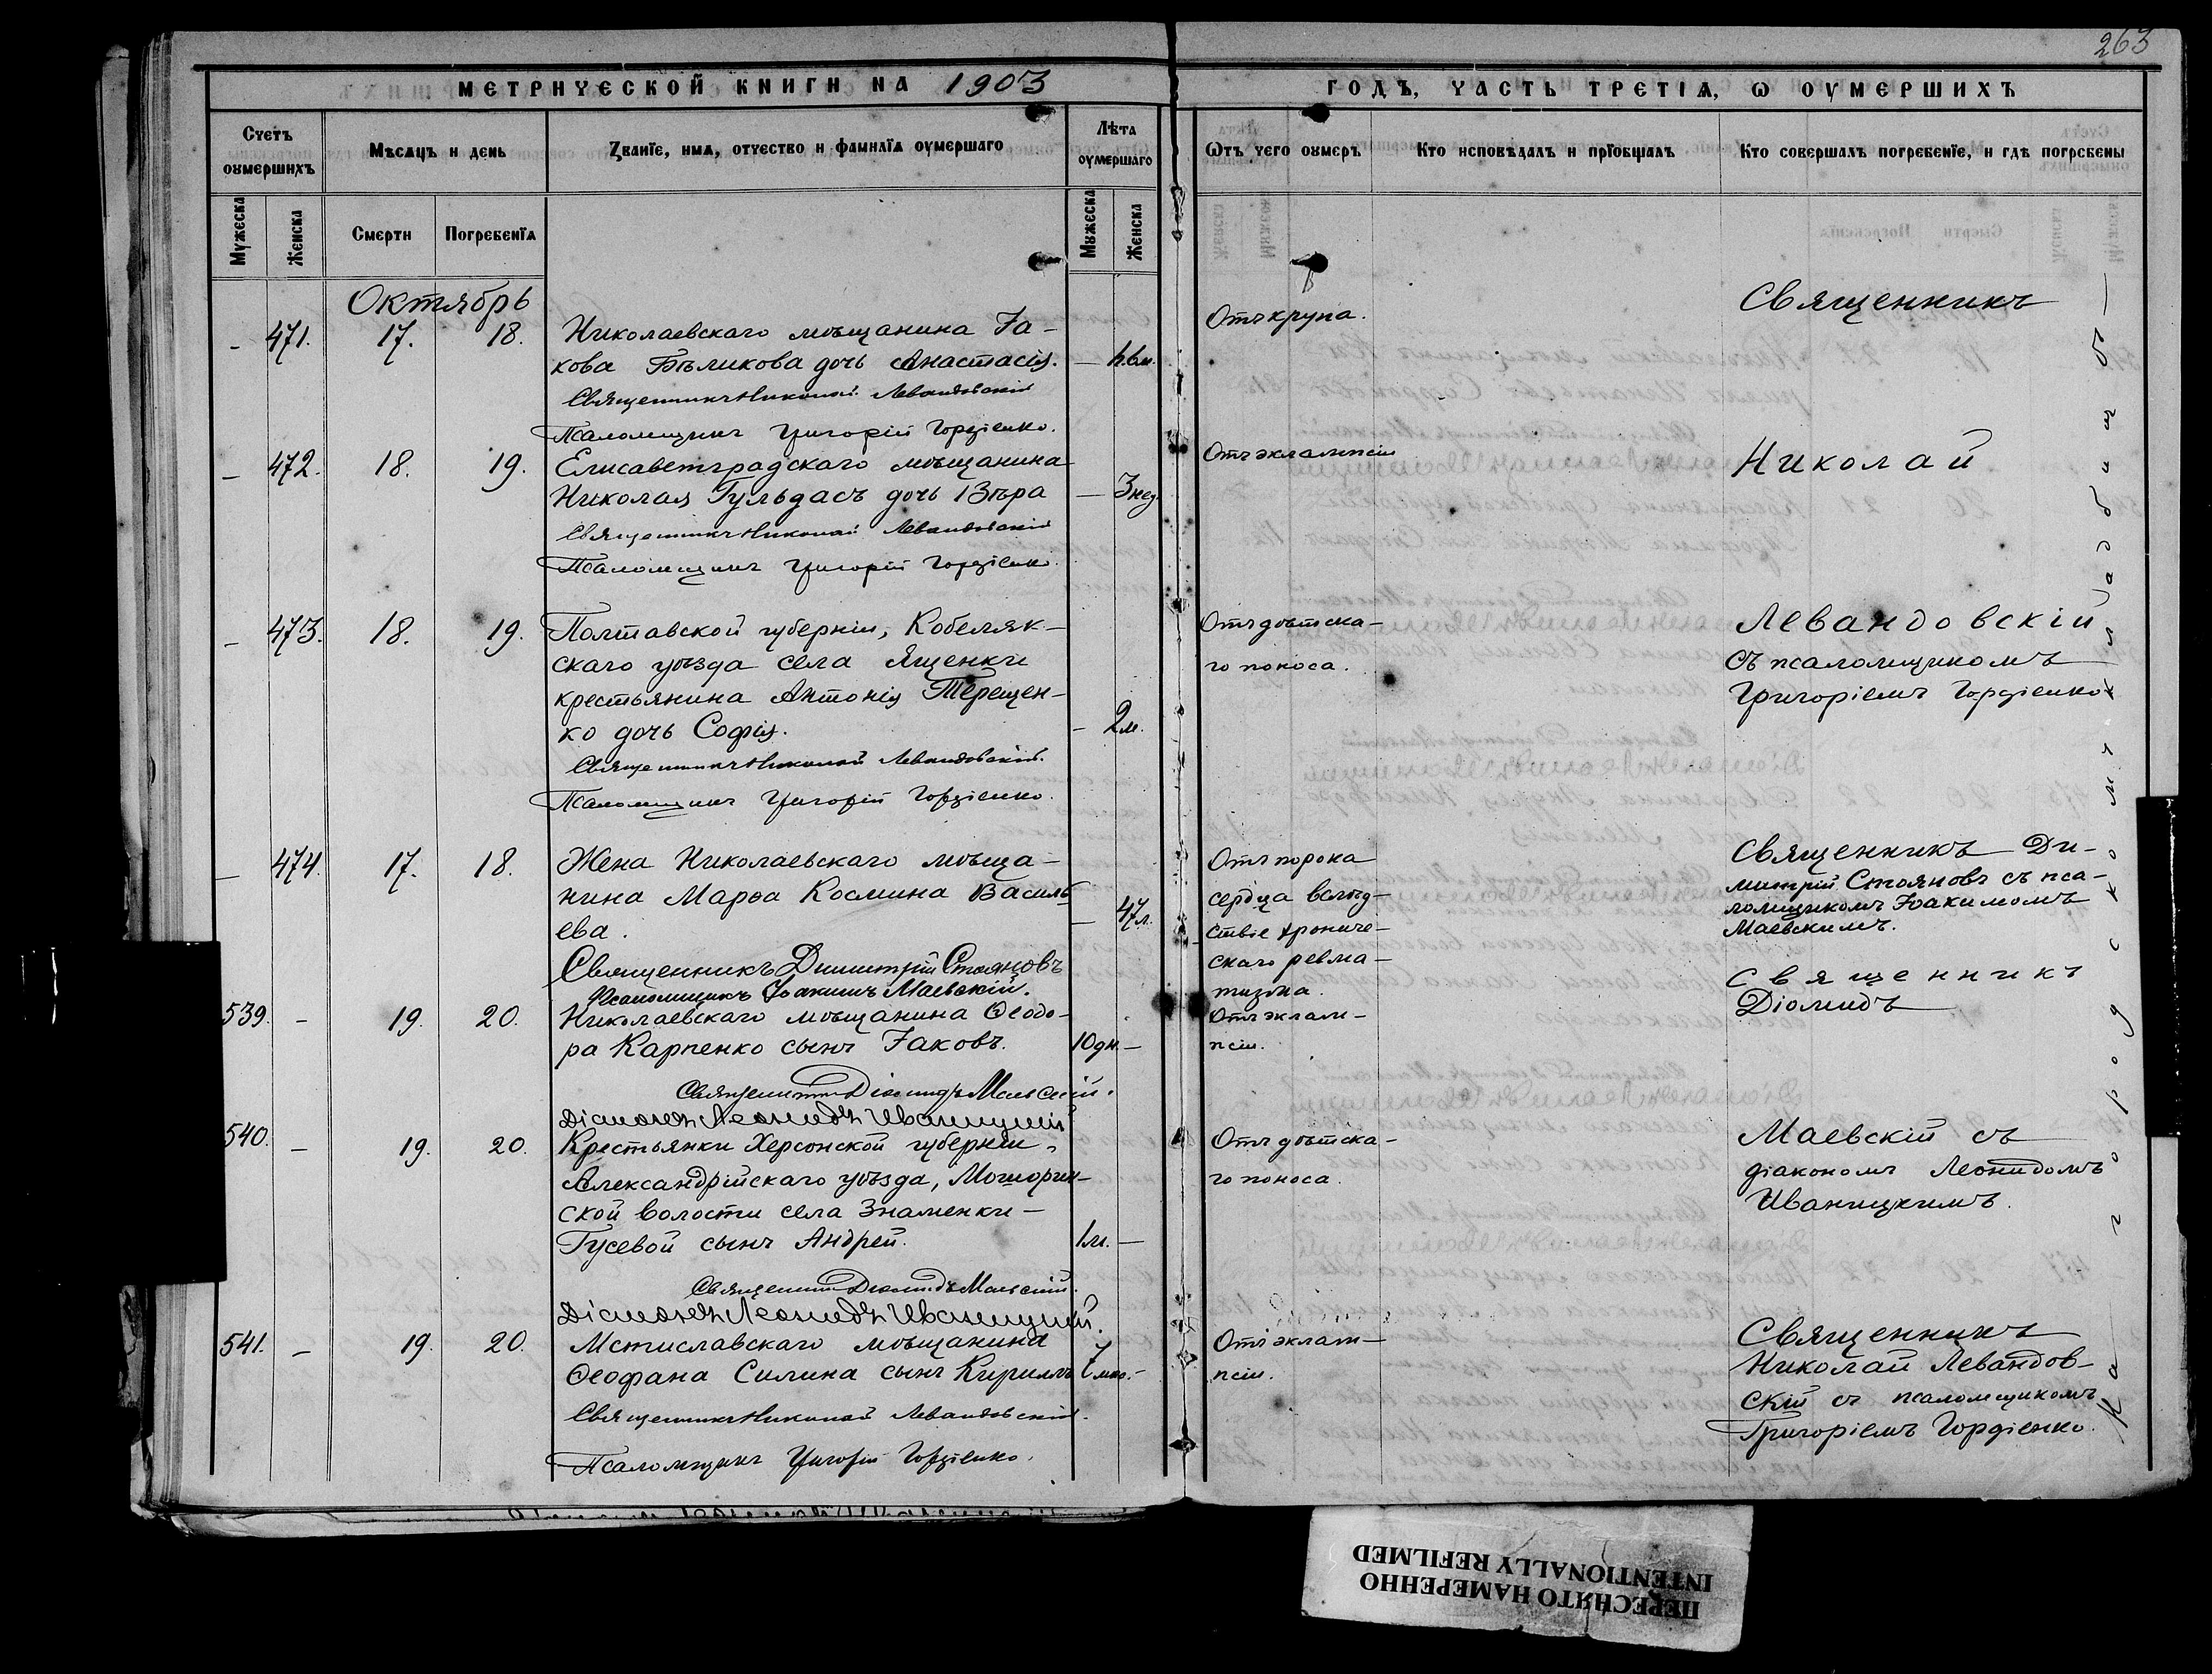 263
МЕТРИЧЕСКОЙ КНИГИ НА 1903
ГОДЪ, ЧАСТЬ ТРЕТІѦ, Ѡ ОУМЕРШИХЪ
Счетъ оумершихъ
Мѣсяцъ и день
Званїе, имѧ, отчество и фамилїа оумершаго
Лѣта оумершаго
Ѿтъ чего оумеръ
Кто исповѣдалъ и прїобщалъ
Кто совершалъ погребенїе, и гдѣ погребены
Мужеска
Женска
Смерти
Погребенїѧ
Мужеска
Женска
Октябрь
- 471. 17. 18. Николаевскаго мѣщанина Іа-
кова Бѣликова дочь Анастасія.
Священникъ Николай Левандовскій
Псаломщикъ Григорій Гордіенко.
Отъ крупа.
Священникъ
- 472. 18. 19. Елисаветградскаго мѣщанина
Николая Гульдасъ дочь Вѣра — 3 нед.
Священникъ Николай Левандовскій
Псаломщикъ Григорій Гордіенко.
Отъ эклампсіи
Николай
- 473. 18. 19. Полтавской губерніи, Кобеляк-
скаго уѣзда села Ященки
крестьянина Антонія Терещен-
ко дочь Софія. - 2 м.
Священникъ Николай Левандовскій.
Псаломщикъ Григорій Гордіенко.
Отъ дѣтска-
го поноса.
Левандовскій
съ псаломщикомъ
Григоріемъ Гордіенко
— 474. 17. 18. Жена Николаевскаго мѣща-
нина Марѳа Космина Василь-
ева. — 47 л.
Священникъ Димитрій Стояновъ
Псаломщикъ Іоакимъ Маевскій.
Отъ порока
сердца вслѣд-
ствіе хрониче-
скаго ревма-
тизма.
Священникъ Ди-
митрій Стояновъ съ пса-
ломщикомъ Іоакимомъ
Маевскимъ.
539. - 19. 20. Николаевскаго мѣщанина Ѳеодо-
ра Карпенко сынъ Іаковъ. 10 дн. —
Священникъ Діомидъ Маевскій.
Діаконъ Леонидъ Иваницкій
Отъ эклам-
псіи.
Священникъ
Діомидъ
540. — 19. 20. Крестьянки Херсонской губерніи,
Александрійскаго уѣзда, Мошорин-
ской волости села Знаменки —
Гусевой сынъ Андрей. 1 м. —
Священникъ Діомидъ Маевскій.
Діаконъ Леонидъ Иваницкій.
Отъ дѣтска-
го поноса.
Маевскій съ
діакономъ Леонидомъ
Иваницкимъ.
541. — 19. 20. Мстиславскаго мѣщанина
Ѳеофана Силина сынъ Кириллъ
Священникъ Николай Левандовскій.
Псаломщикъ Григорій Гордіенко.
Отъ эклам-
псіи.
Священникъ
Николай Левандов-
скій съ псаломщикомъ
Григоріемъ Гордіенко.
На городскомъ кладбищѣ —
ПЕРЕСНЯТО НАМЕРЕННО
INTENTIONALLY REFILMED